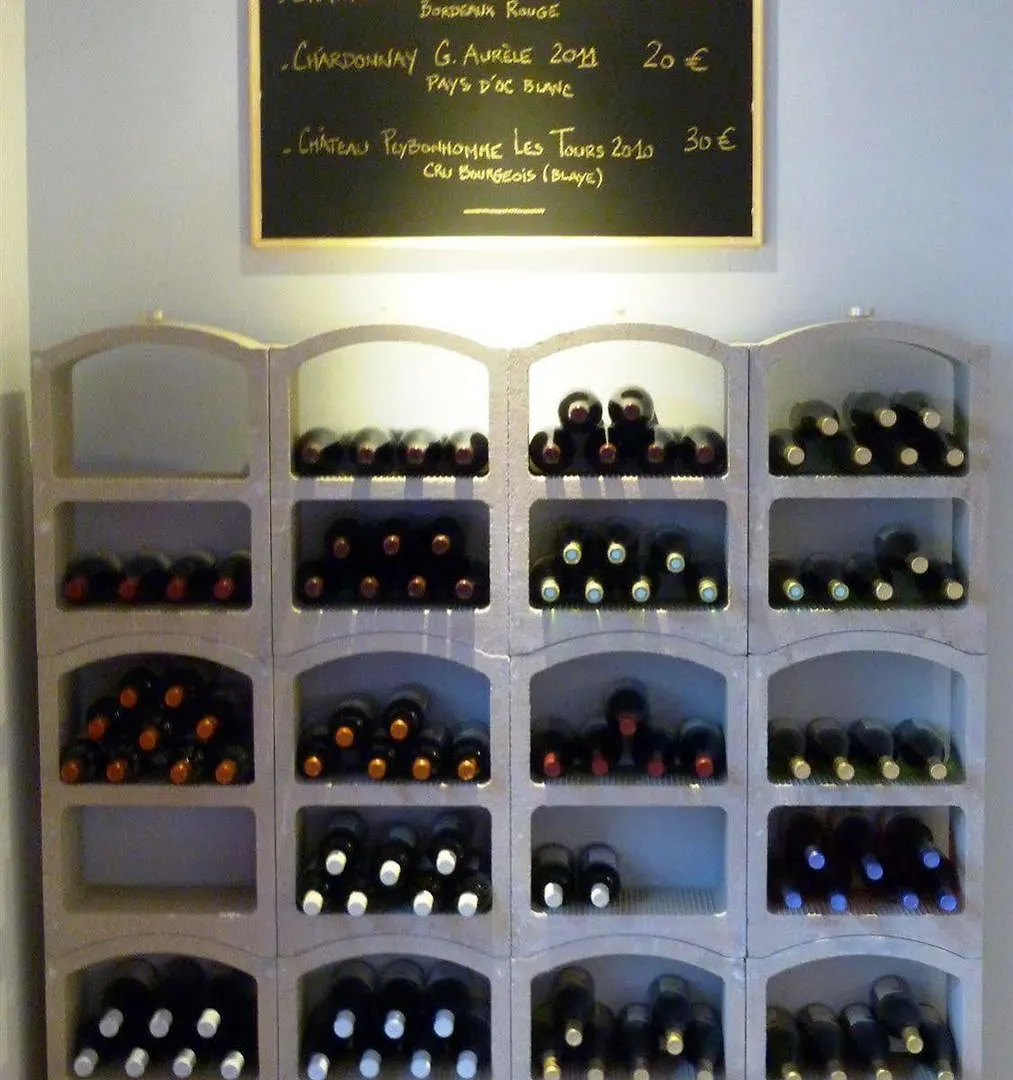 BORDEAUX ROUGE
. CHARDONNAY G. AURÈLE 2011 20 €
PAYS D'OC BLANC
. CHÂTEAU PEYBONHOMME LES TOURS 2010 30 €
CRU BOURGEOIS (BLAYE)